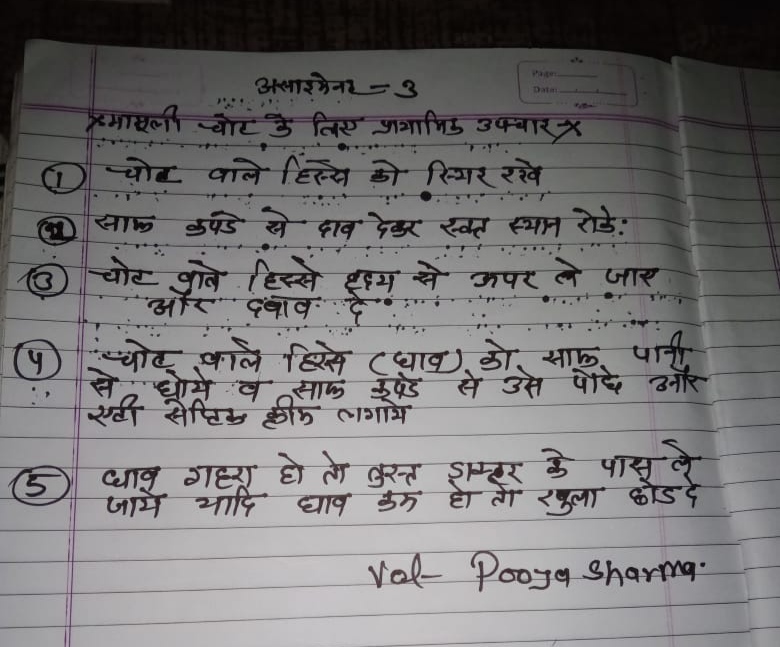 असाइमेन्ट - 3
Page:
Date:
x मामूली चोट के लिए प्राथामिक उपचार x
① चोट वाले हिस्से को स्थिर रखे
② साफ कपडे से दाब देकर रक्त स्थान रोके:
③ चोट वाले हिस्से हृदय से ऊपर ले जाए
और दबाव दे
④ चोट वाले हिस्से (घाव) को साफ पानी
से धोये व साफ कपडे से उसे पोछे और
एन्टी सेप्टिक क्रीम लगाये
⑤ घाव गहरा हो तो तुरन्त डाक्टर के पास ले
जाये यादि घाव कम हो तो खुला छोड दे
Vol- Pooja Sharma.